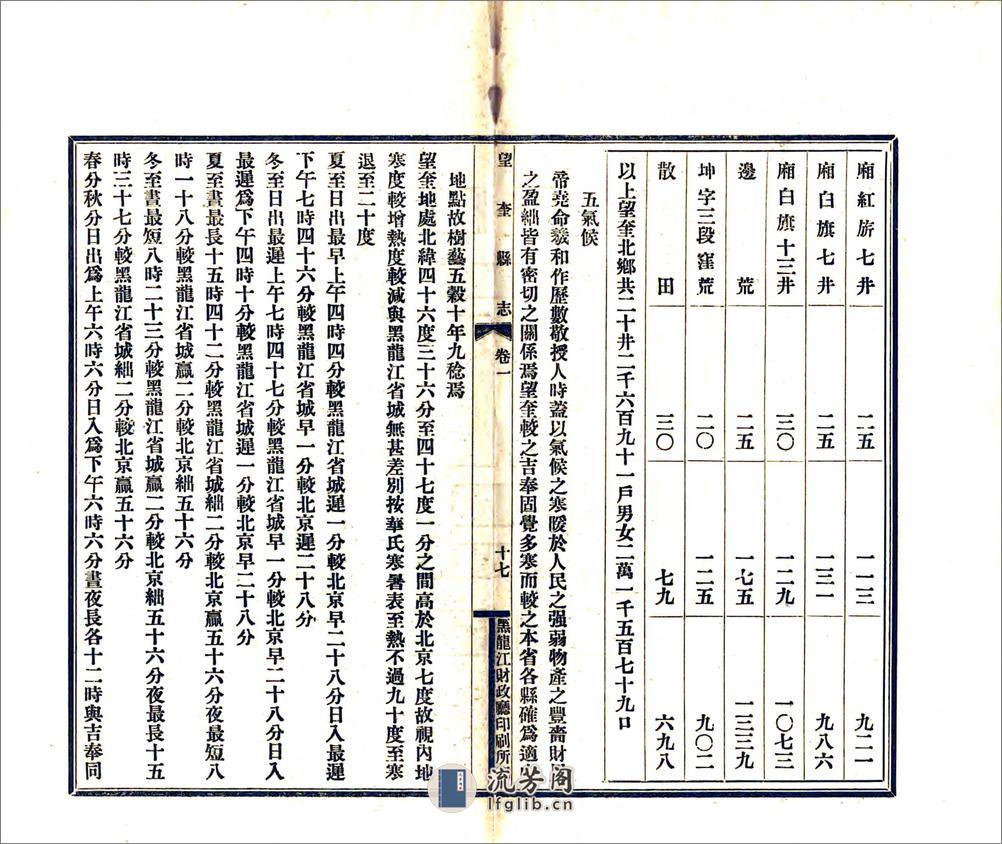 廂紅旂七井　二五　一一三　九二一
廂白旗七井　二五　一三一　九八六
廂白旗十三井　三〇　一二九　一〇七三
邊荒　二五　一七五　一三三九
坤字三段窪荒　二〇　一二五　九〇二
散田　三〇　七九　六九八
以上望奎北鄉共二十井二千六百九十一戶男女二萬一千五百七十九口
五氣候
帝堯命羲和作歷數敬授人時蓋以氣候之寒暖於人民之强弱物產之豐嗇財
之盈絀皆有密切之關係焉望奎較之吉奉固覺多寒而較之本省各縣確爲適
望奎縣志
卷一
十七
黑龍江財政廳印刷所
地點故樹藝五穀十年九稔焉
望奎地處北緯四十六度三十六分至四十七度一分之間高於北京七度故視內地
寒度較增熱度較減與黑龍江省城無甚差別按華氏寒暑表至熱不過九十度至寒
退至二十度
夏至日出最早上午四時四分較黑龍江省城遲一分較北京早二十八分日入最遲
下午七時四十六分較黑龍江省城早一分較北京遲二十八分
冬至日出最遲上午七時四十七分較黑龍江省城早一分較北京早二十八分日入
最遲爲下午四時十分較黑龍江省城遲一分較北京早二十八分
夏至晝最長十五時四十二分較黑龍江省城絀二分較北京贏五十六分夜最短八
時一十八分較黑龍江省城贏二分較北京絀五十六分
冬至晝最短八時二十三分較黑龍江省城贏二分較北京絀五十六分夜最長十五
時三十七分較黑龍江省城絀二分較北京贏五十六分
春分秋分日出爲上午六時六分日入爲下午六時六分晝夜長各十二時與吉奉同
流芳阁
lfglib.cn